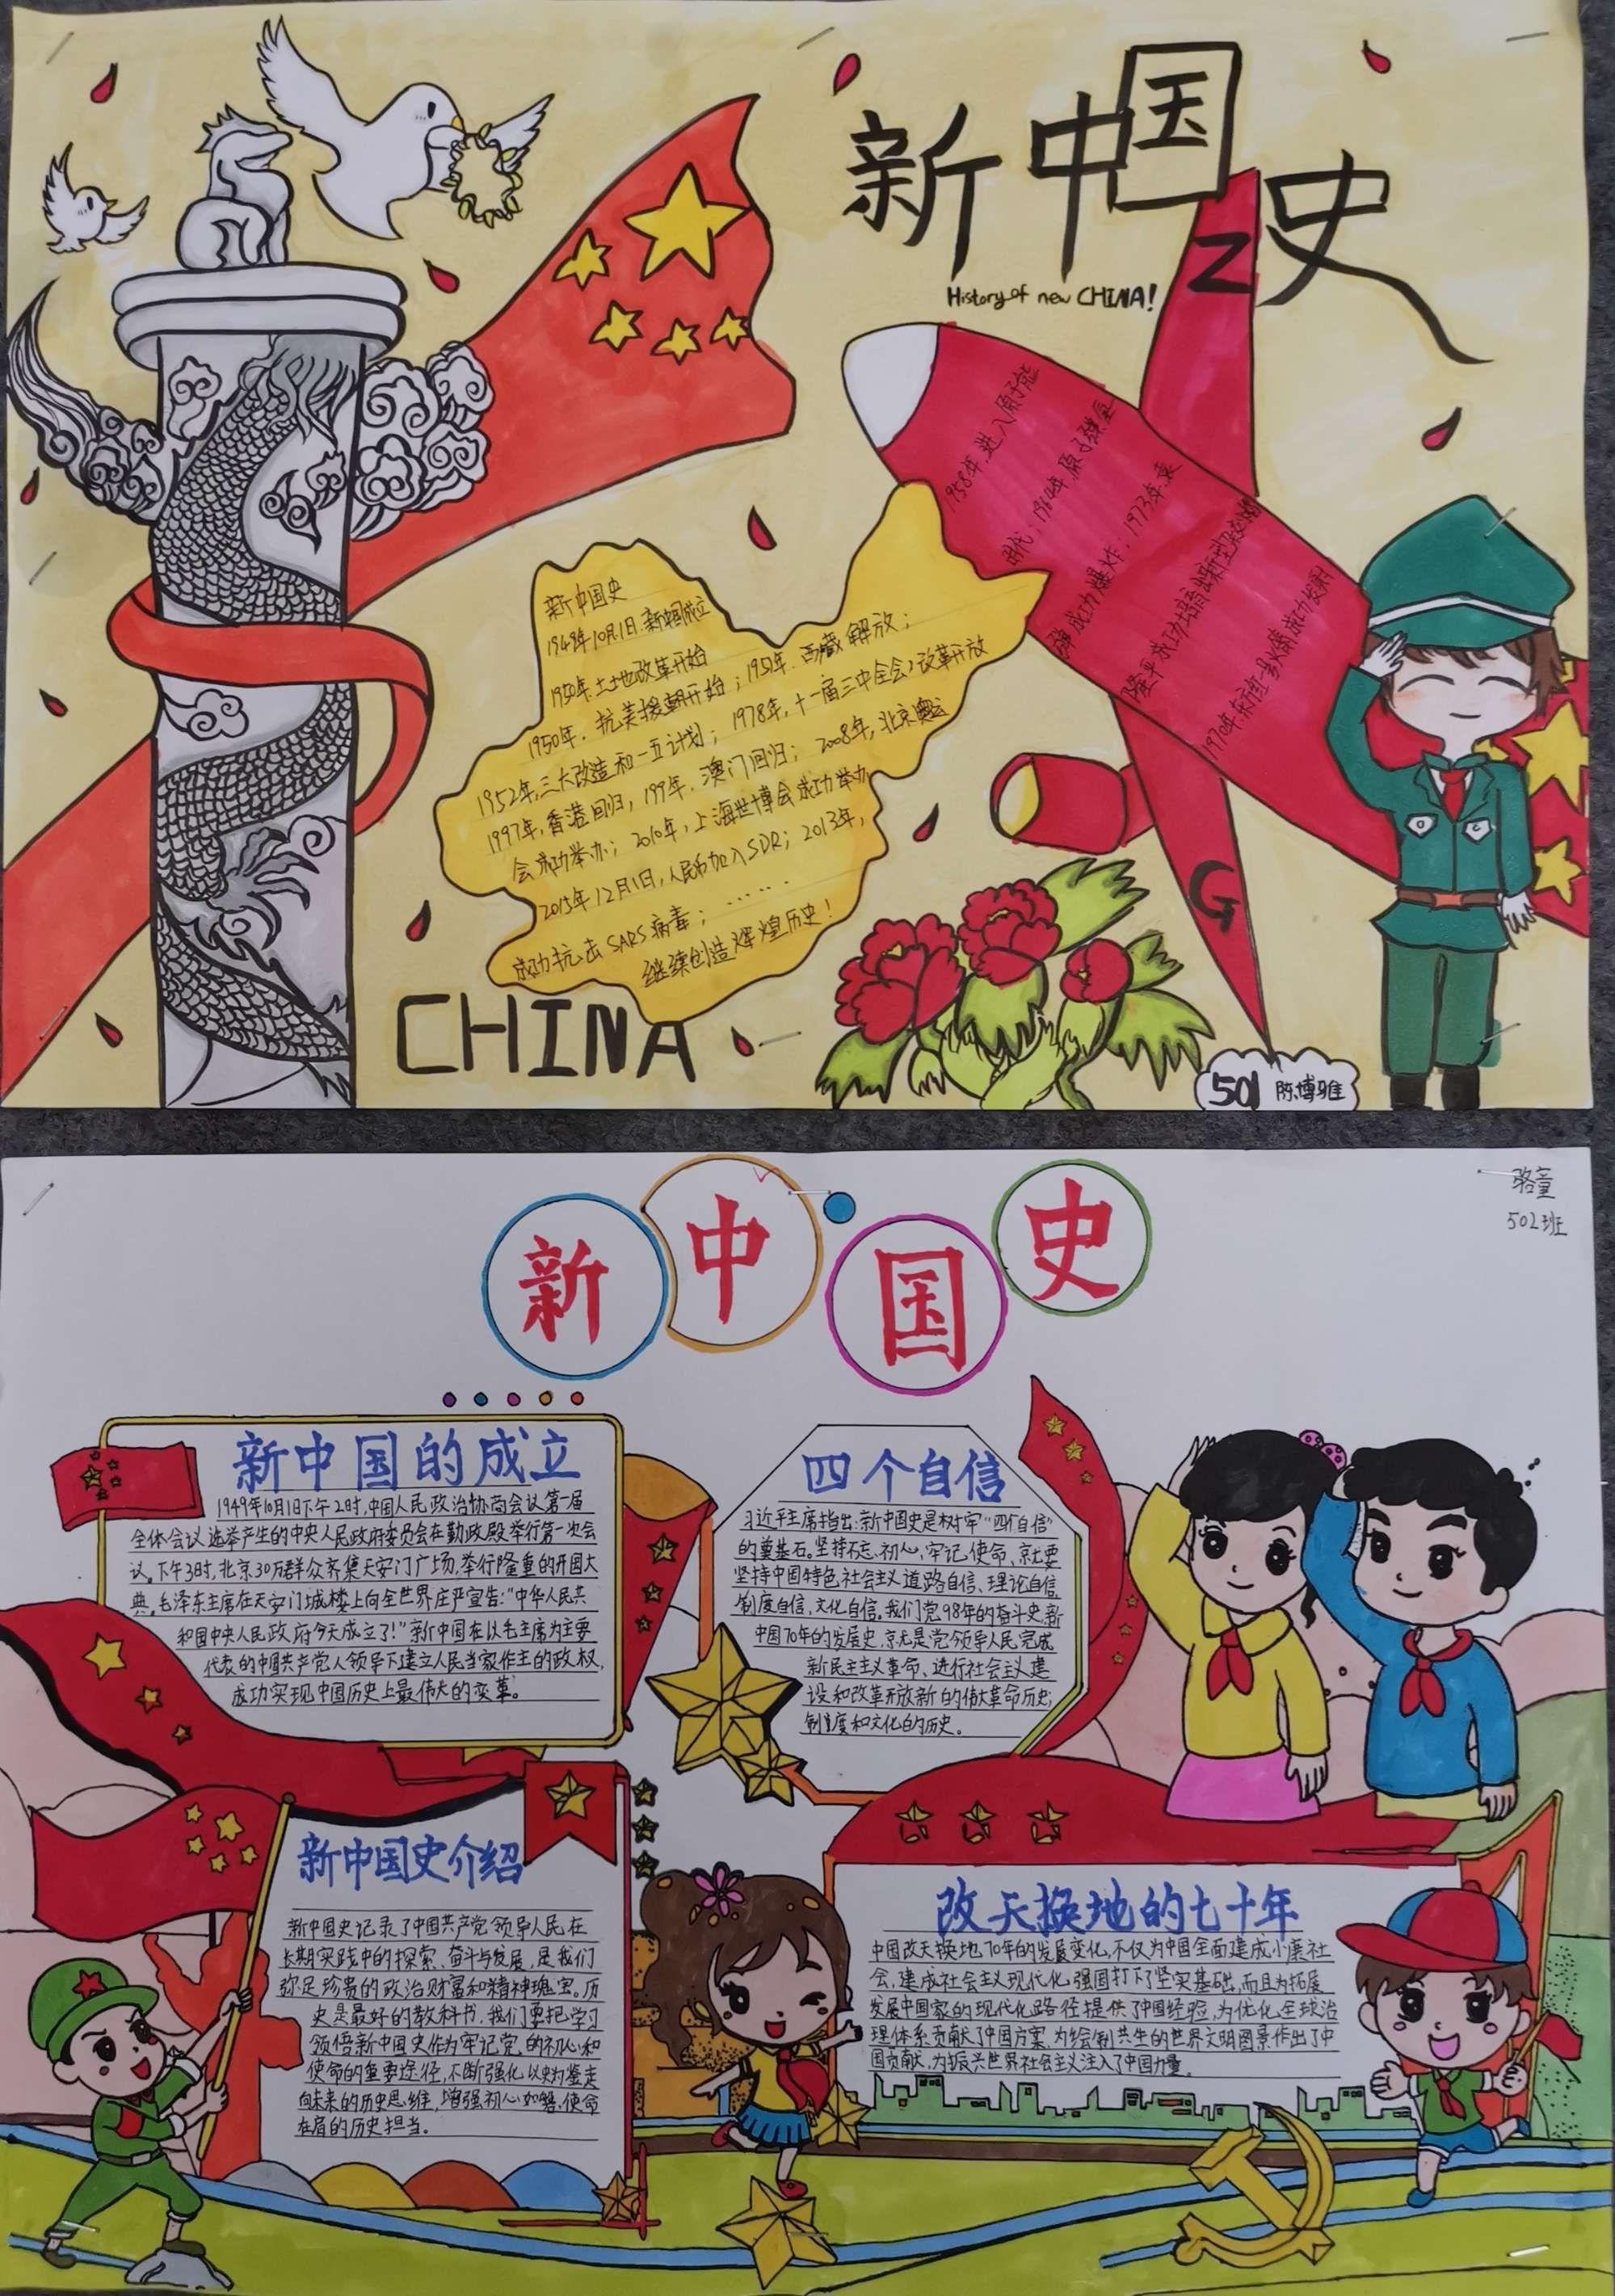 新中国史
History of new CHINA!
Z
1958年,进入原子能
时代;1964年,原子弹
成功爆炸;1973年,袁
隆平成功培育出新型杂交水稻
1970年,东方红一号火箭成功发射
G
新中国史
1949年10月1日.新中国成立
1950年.土地改革开始
1950年.抗美援朝开始;1951年.西藏解放;
1952年,三大改造和一五计划;1978年,十一届三中全会,改革开放
1997年,香港回归,1999年.澳门回归;2008年,北京奥运
会成功举办;2010年,上海世博会成功举办
2015年12月1日,人民币加入SDR;2013年,
成功抗击SARS病毒;……
继续创造辉煌历史!
CHINA
501 陈博雅
骆童
502班
新中国史
新中国的成立
1949年10月1日下午2时,中国人民政治协商会议第一届
全体会议选举产生的中央人民政府委员会在勤政殿举行第一次会
议。下午3时,北京30万群众齐集天安门广场,举行隆重的开国大
典。毛泽东主席在天安门城楼上向全世界庄严宣告:“中华人民共
和国中央人民政府今天成立了!”新中国在以毛主席为主要
代表的中国共产党人领导下建立人民当家作主的政权,
成功实现中国历史上最伟大的变革。
四个自信
习近平主席指出:新中国史是树牢“四个自信”
的奠基石。坚持不忘初心,牢记使命、就要
坚持中国特色社会主义道路自信、理论自信
制度自信,文化自信。我们党98年的奋斗史,新
中国70年的发展史,就是党领导人民完成
新民主主义革命、进行社会主义建
设和改革开放新的伟大革命历史,
制度和文化的历史。
新中国史介绍
新中国史记录了中国共产党领导人民在
长期实践中的探索、奋斗与发展,是我们
弥足珍贵的政治财富和精神瑰宝。历
史是最好的教科书,我们要把学习
领悟新中国史作为牢记党的初心和
使命的重要途径,不断强化以史为鉴走
向未来的历史思维,增强初心如磐,使命
在肩的历史担当。
改天换地的七十年
中国改天换地70年的发展变化,不仅为中国全面建成小康社
会,建成社会主义现代化强国打下了坚实基础,而且为拓展
发展中国家的现代化路径提供了中国经验,为优化全球治
理体系贡献了中国方案,为绘制共生的世界文明图景作出了中
国贡献,为振兴世界社会主义注入了中国力量。